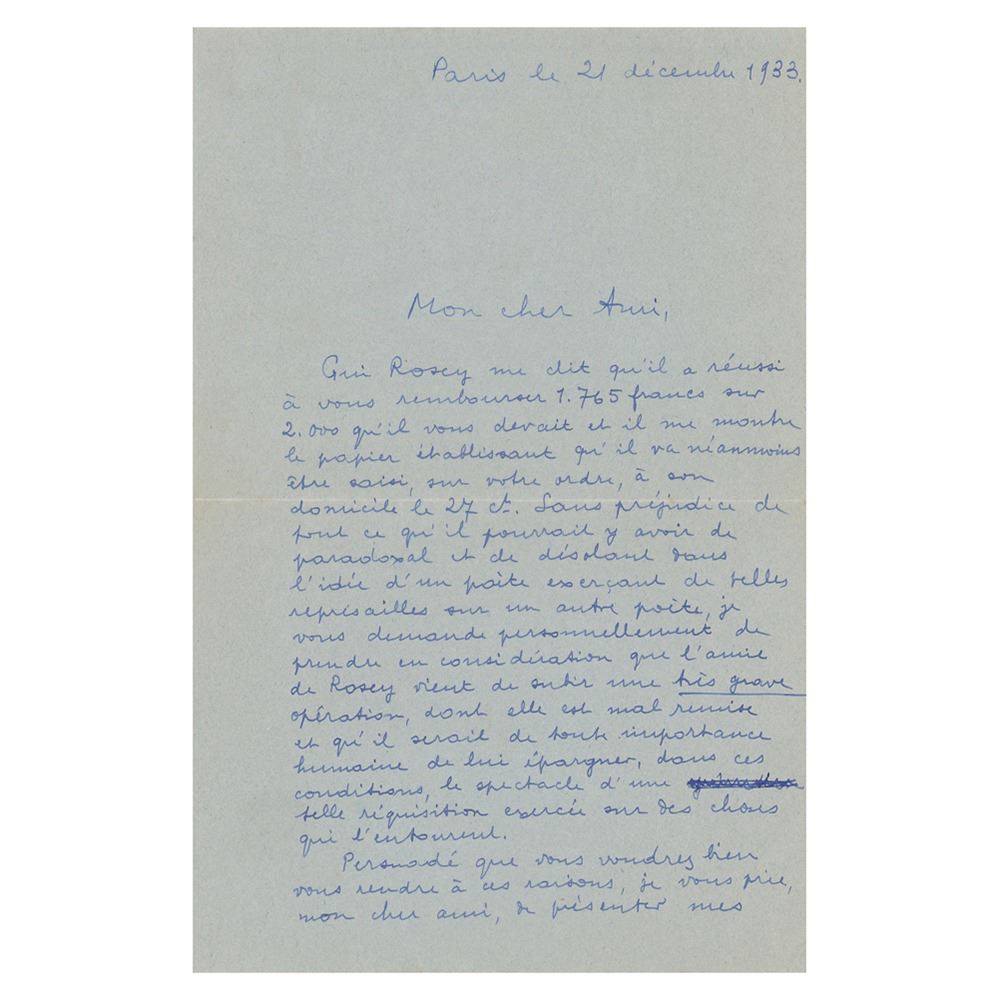 Paris le 21 décembre 1933.
Mon cher Ami,
Gui Rosey me dit qu'il a réussi
à vous rembourser 1.765 francs sur
2.000 qu'il vous devait et il me montre
le papier établissant qu'il va néanmoins
être saisi, sur votre ordre, à son
domicile le 27 ct. Sans préjudice de
tout ce qu'il pourrait y avoir de
paradoxal et de désolant dans
l'idée d'un poète exerçant de telles
représailles sur un autre poète, je
vous demande personnellement de
prendre en considération que l'amie
de Rosey vient de subir une très grave
opération, dont elle est mal remise
et qu'il serait de toute importance
humaine de lui épargner, dans ces
conditions, le spectacle d'une
telle réquisition exercée sur des choses
qui l'entourent.
Persuadé que vous voudrez bien
vous rendre à ces raisons, je vous prie,
mon cher ami, de présenter mes